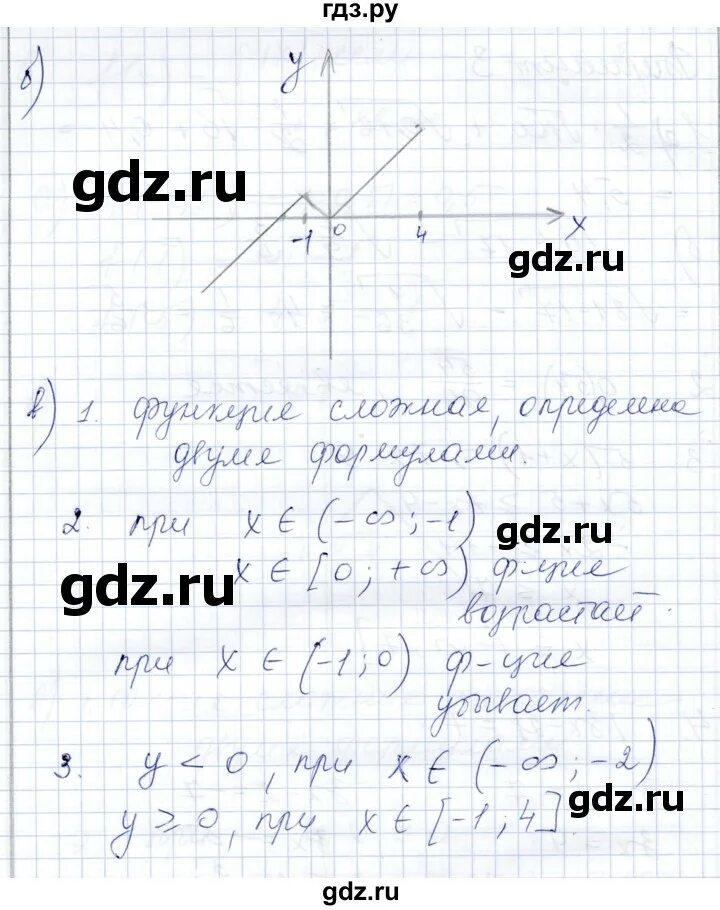 гдз.ру
б)
y
gdz.ru
-1 0 4 x
gdz.ru
в) 1. функция сложная, определена
двумя формулами.
2. при x ∈ (-∞; -1)
gdz.ru
x ∈ [0; +∞) ф-ция
gdz.ru
возрастает.
при x ∈ (-1; 0) ф-ция
убывает.
3. y < 0, при x ∈ (-∞; -2)
gdz.ru
y ≥ 0, при x ∈ [-1; 4].
gdz.ru